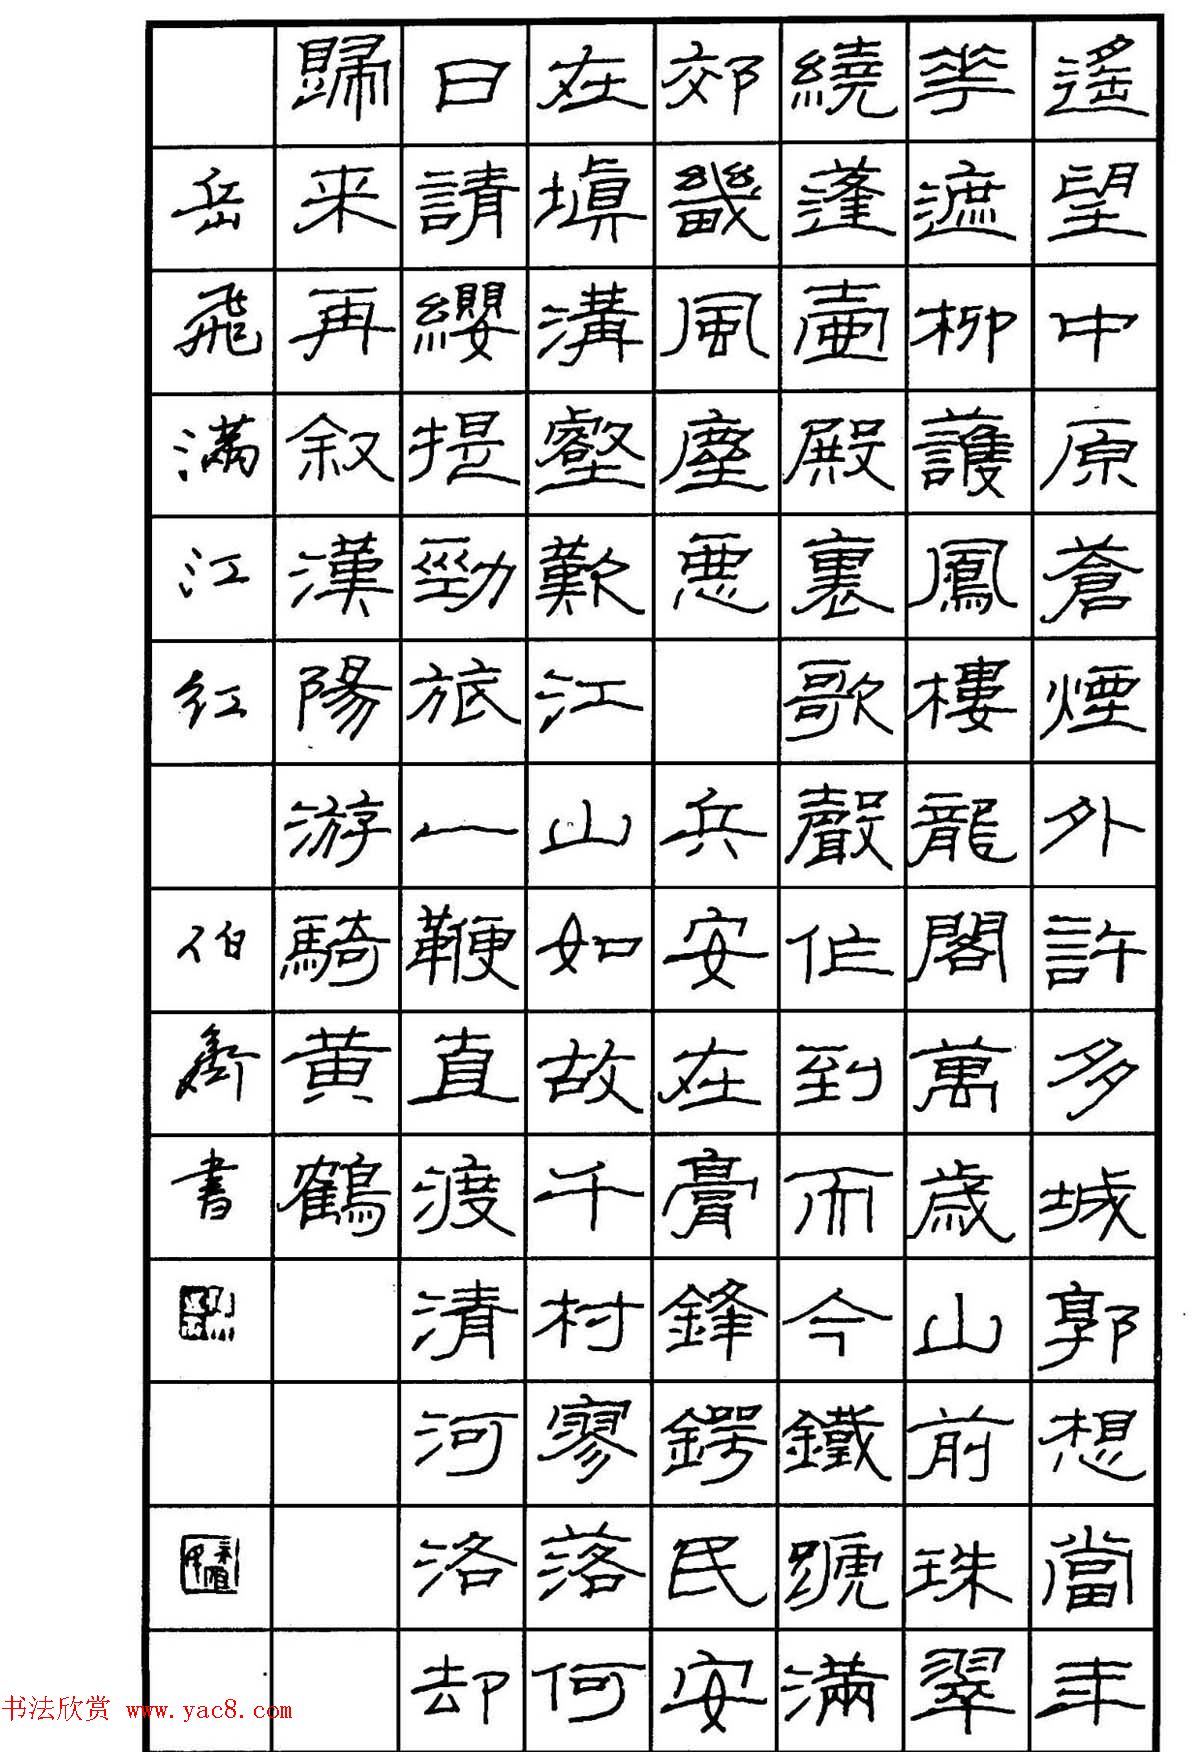 遙望中原蒼煙外許多城郭想當年
華遮柳護鳳樓龍閣萬歲山前珠翠
繞蓬壺殿裏歌聲作到而今鐵蹄滿
郊畿風塵惡 兵安在膏鋒鍔民安
在填溝壑歎江山如故千村寥落何
日請纓提勁旅一鞭直渡清河洛却
歸来再叙漢陽游騎黄鶴
岳飛滿江红 伯 書
书法欣赏 www.yac8.com